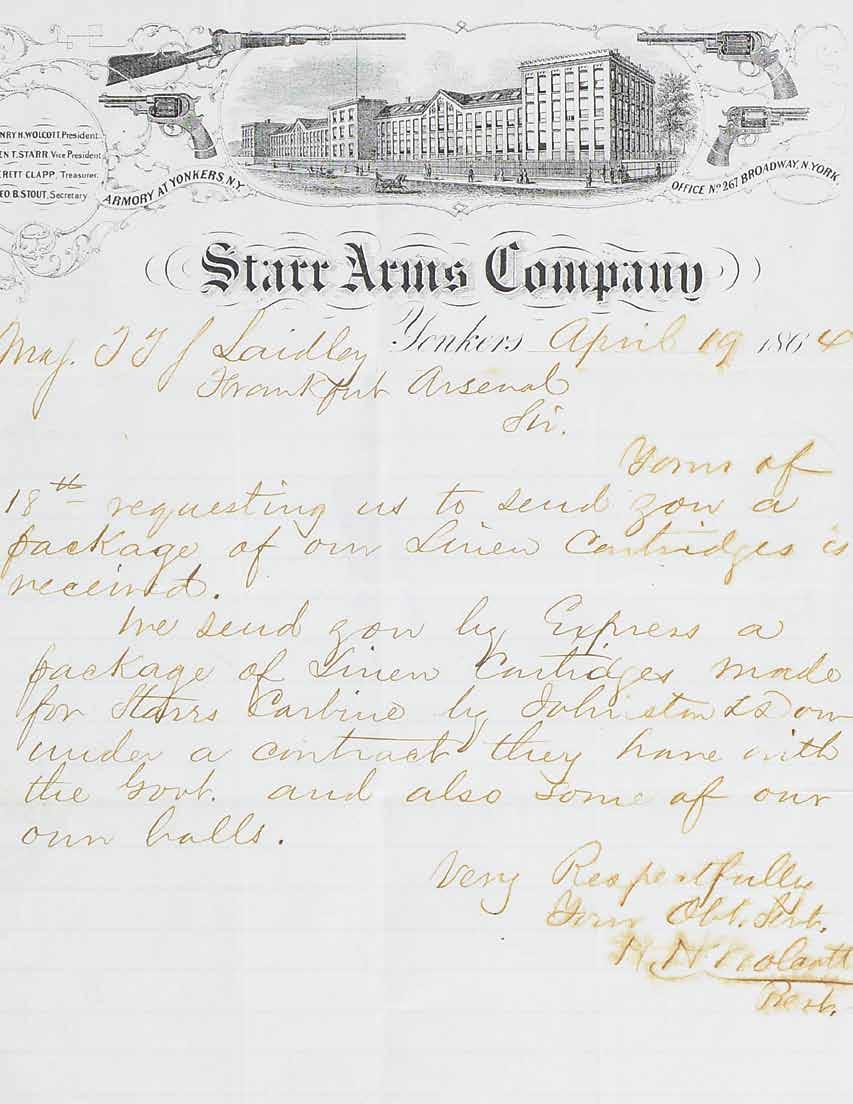 NRY H. WOLCOTT, President
EN T. STARR, Vice President
ERETT CLAPP, Treasurer
EO B. STOUT, Secretary
ARMORY AT YONKERS N.Y.
OFFICE No. 267 BROADWAY, N.YORK.
Starr Arms Company
Yonkers April 19 1864
Maj. T T S Laidley
Frankfort Arsenal
Sir.
Yours of
18th requesting us to send you a
package of our Linen Cartridges is
received.
We send you by Express a
package of Linen Cartridges made
for Starrs Carbine by Johnston & Dow
under a contract they have with
the Govt. and also some of our
own balls.
Very Respectfully
Your Obt. Servt.
H. H. Wolcott
Prest.